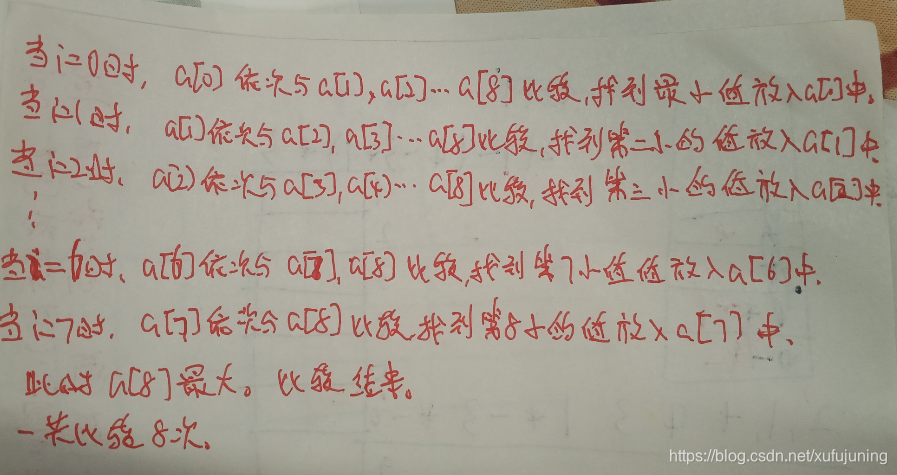 当i=0时，a[0]依次与a[1],a[2]…a[8]比较，找到最小值放入a[0]中。
当i=1时，a[1]依次与a[2],a[3]…a[8]比较，找到第二小的值放入a[1]中.
当i=2时、a[2]依次与a[3],a[4]…a[8]比较，找到第三小的值放入a[2]中.
⋮
当i=6时、a[6]依次与a[7],a[8]比较，找到第7小值值放入a[6]中.
当i=7时，a[7]依次与a[8]比较，找到第8小的值放入a[7]中、
此时a[8]最大。比较结束。
一共比较8次。
https://blog.csdn.net/xufujuning